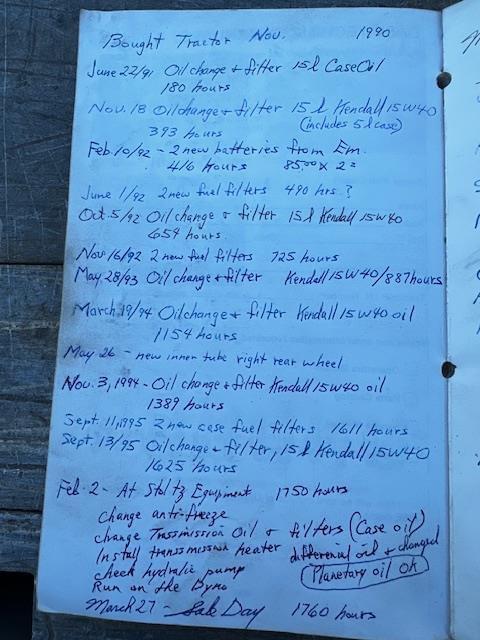 Bought Tractor Nov. 1990
June 22/91 Oil change + filter 15l Case Oil
180 hours
Nov. 18 Oil change + filter 15l Kendall 15W40
(includes 5l case)
393 hours
Feb. 10/92 - 2 new batteries from Em.
416 hours 85.00 x 2 =
June 1/92 2 new fuel filters 490 hrs.?
Oct. 5/92 Oil change + filter 15l Kendall 15W40
654 hours.
Nov 16/92 2 new fuel filters 725 hours
May 28/93 Oil change + filter Kendall 15W40/887 hours
March 19/94 Oil change + filter Kendall 15W40 oil
1154 hours
May 26 - new inner tube right rear wheel
Nov. 3, 1994 - Oil change + filter Kendall 15W40 oil
1389 hours
Sept. 11, 1995 2 new case fuel filters 1611 hours
Sept. 13/95 Oil change + filter, 15l Kendall 15W40
1625 hours
Feb - 2 - At Stoltz Equipment 1750 hours
Change anti-freeze
change Trassmission Oil + filters (Case oil)
Install transsmission heater differencial oil + changed
check hydralic pump (Planetary oil OK)
Run on the Dyno
March 27 - Sale Day 1760 hours